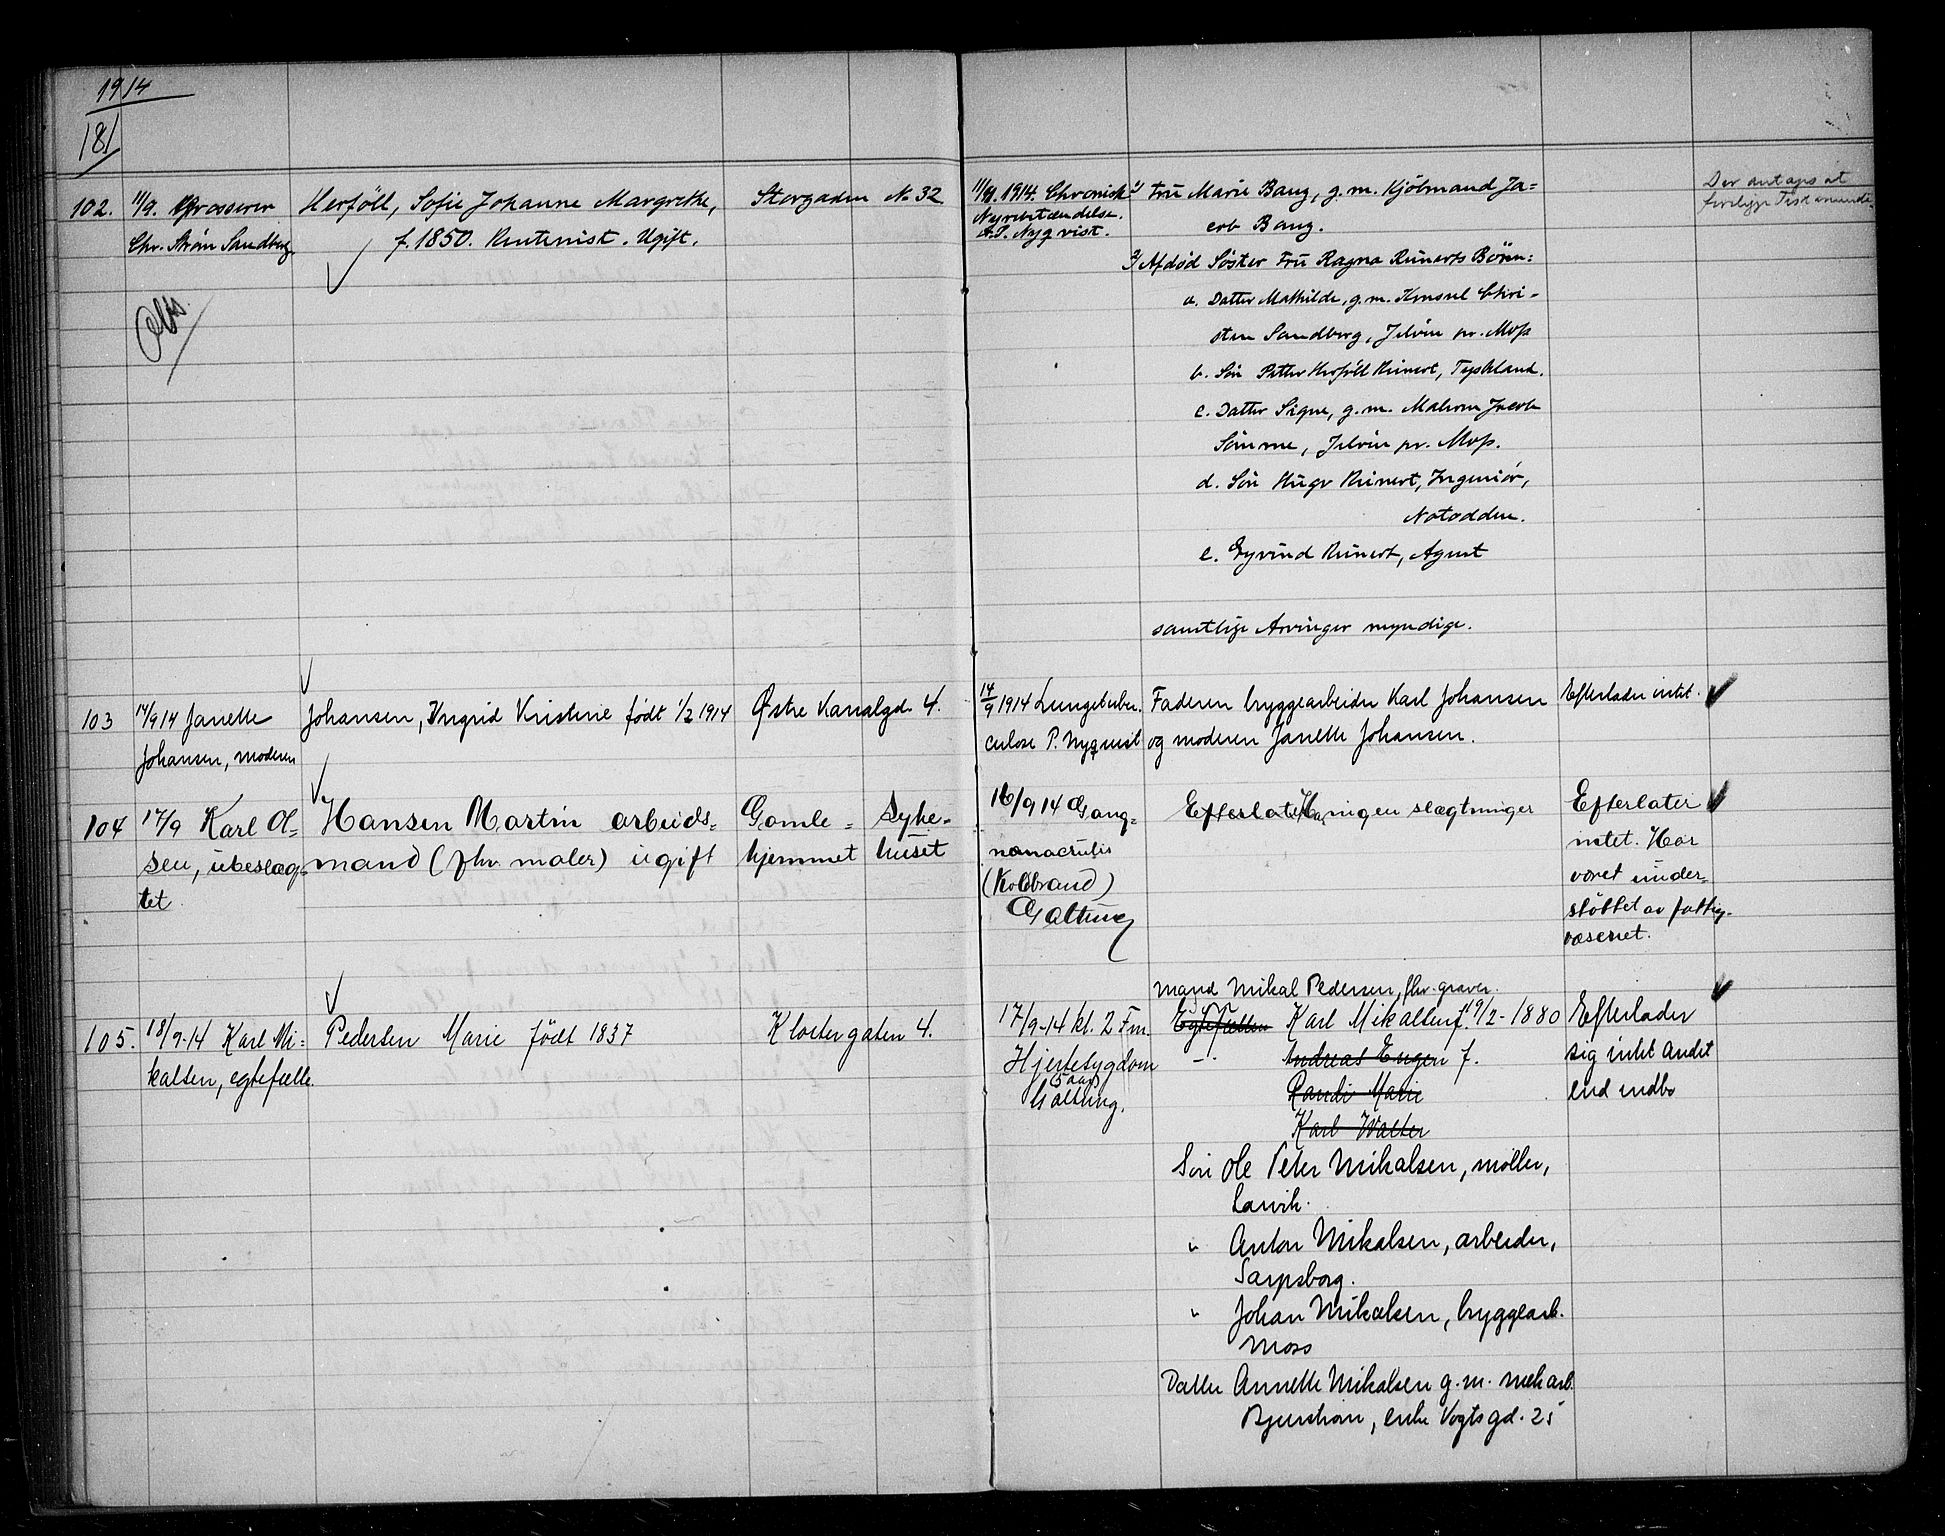 1914
181
102. 11/9. Grosserer
Chr. Strøm Sandberg.
Herföll, Sofie Johanne Margrethe,
f. 1850. Rentenist. Ugift.
Storgaden No 32
11/9. 1914. Chronisk
Nyrebetændelse.
A.P. Nyqvist.
1/ Fru Marie Bang, g.m. Kjöbmand Ja=
cob Bang.
2/ Afdöd Söster Fru Ragna Reinerts Börn:
a. Datter Mathilde, g.m. Konsul Chri-
sten Sandberg, Jelöen pr. Moss
b. Sön Petter Herföll Reinert, Tyskland.
c. Datter Signe, g.m. Jacob
Sömme, Jelöen pr. Moss.
d. Sön Hugo Reinert, Ingeniör,
Notodden.
e. Eyvind Reinert, Agent
samtlige Arvinger myndige.
Der antages at
foreligge Testamente.
103 17/9 14 Janette
Johansen, moderen
Johansen, Ingrid Kristine født 1/2 1914
Østre Kanalgd. 4.
14/9 1914 Lungetuber-
culose P. Nyquist
Faderen bryggearbeider Karl Johansen
og moderen Janette Johansen.
Efterlader intet.
104 17/9 Karl Ol=
sen, ubeslæg=
tet.
Hansen Martin arbeids=
mand (fhv. maler) ugift
Gamle=
hjemmet
Syke-
huset
16/9 14 Gang=
(Koldbrand)
Galtung
Har ingen slægtninger
Efterlater
intet. Har
været under=
støttet av fattig-
væsenet.
105. 18/9-14 Karl Mi=
kalsen, egtefælle.
Pedersen Marie født 1837
Klostergaten 4.
17/9-14 kl. 2 Fm.
Hjertesygdom
5 aar
Galtung.
mand Mikal Pedersen, fhv. graver.
Egtefællen Karl Mikalsen f. 19/2-1880
-"- Andreas Eugen f.
Randi Marie
Karl Walter
Sön Ole Peter Mikalsen, møller,
Larvik.
" Anton Mikalsen, arbeider,
Sarpsborg.
" Johan Mikalsen, bryggearb.
Moss
Datter Annette Mikalsen g.m. mek arb.
Bjurstrøm, enke Vogtsgd. 25
Efterlader
sig intet andet
end indbo